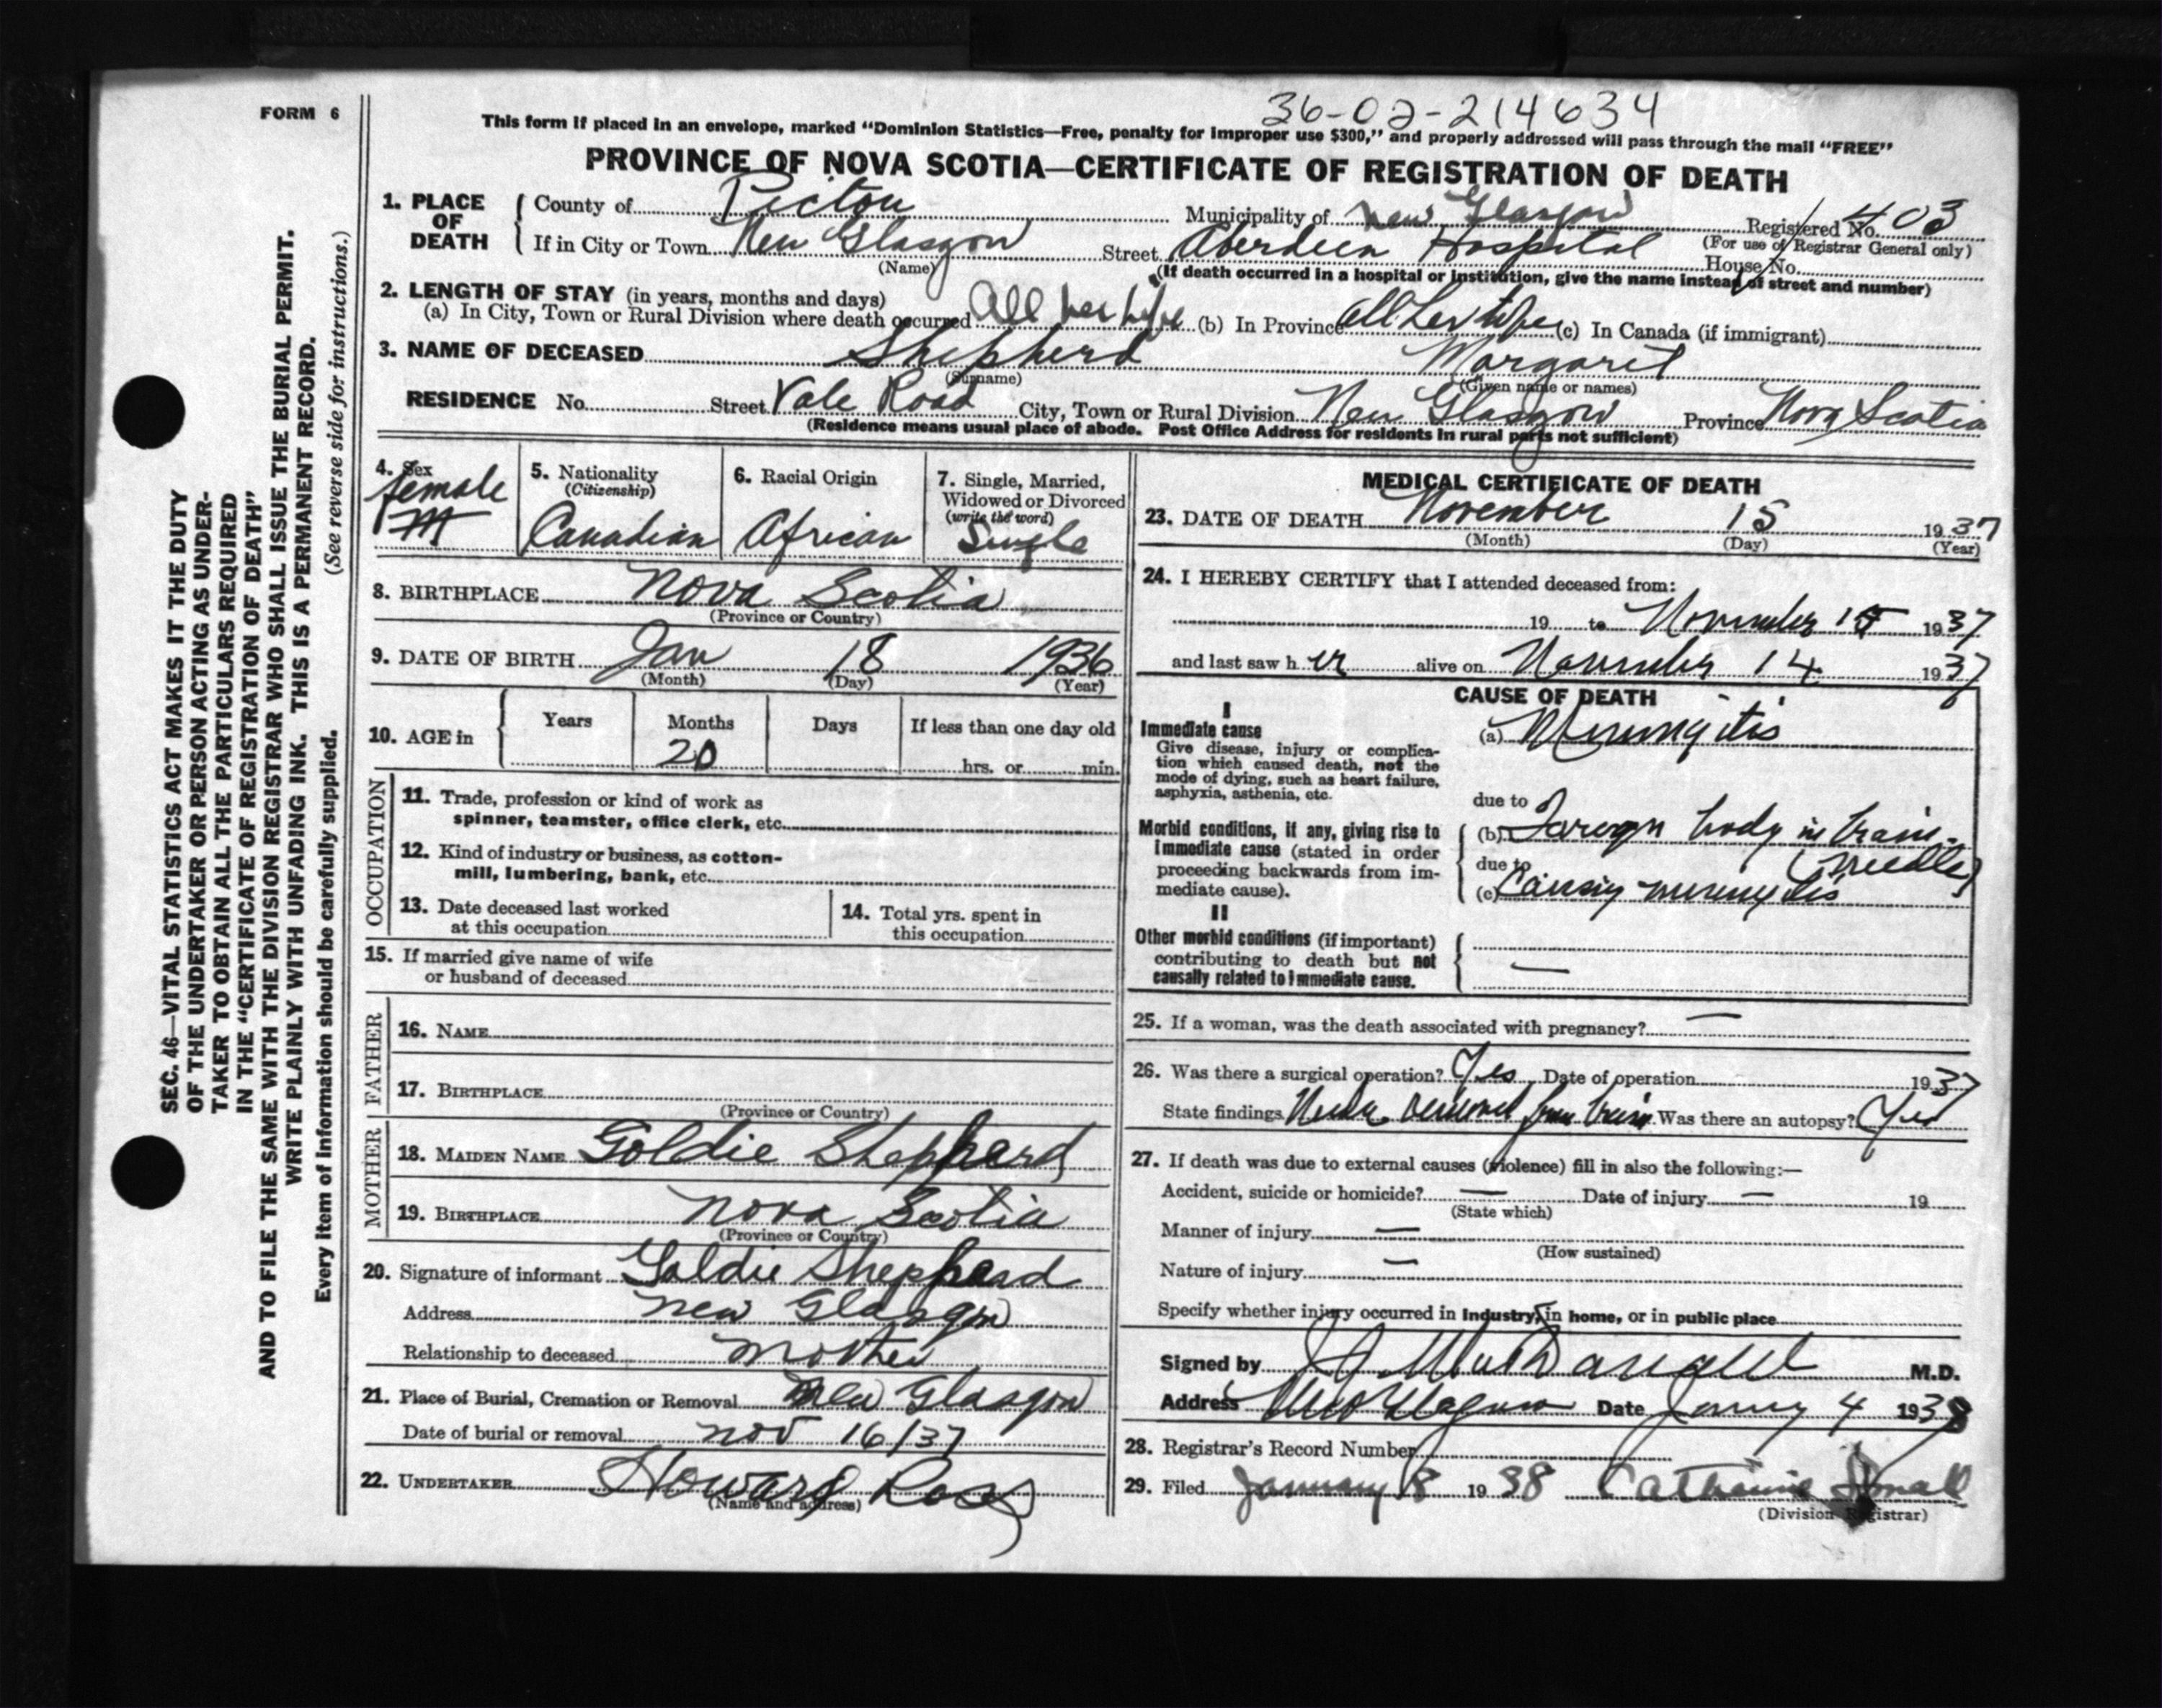 36-02-214634
FORM 6
This form if placed in an envelope, marked "Dominion Statistics—Free, penalty for improper use $300," and properly addressed will pass through the mail "FREE"
PROVINCE OF NOVA SCOTIA—CERTIFICATE OF REGISTRATION OF DEATH
1. PLACE OF DEATH
County of Pictou Municipality of New Glasgow Registered No. 403
(For use of Registrar General only)
If in City or Town New Glasgow Street Aberdeen Hospital House No.
(Name) (If death occurred in a hospital or institution, give the name instead of street and number)
2. LENGTH OF STAY (in years, months and days)
(a) In City, Town or Rural Division where death occurred All her life (b) In Province All her life (c) In Canada (if immigrant)
3. NAME OF DECEASED Shepherd Margaret
(Surname) (Given name or names)
RESIDENCE No. Street Vale Road City, Town or Rural Division New Glasgow Province Nova Scotia
(Residence means usual place of abode. Post Office Address for residents in rural parts not sufficient)
4. Sex
female
M
5. Nationality
(Citizenship)
Canadian
6. Racial Origin
African
7. Single, Married,
Widowed or Divorced
(write the word)
Single
8. BIRTHPLACE Nova Scotia
(Province or Country)
9. DATE OF BIRTH Jan 18 1936
(Month) (Day) (Year)
10. AGE in Years Months Days If less than one day old
20 hrs. or min.
OCCUPATION
11. Trade, profession or kind of work as
spinner, teamster, office clerk, etc.
12. Kind of industry or business, as cotton-
mill, lumbering, bank, etc.
13. Date deceased last worked
at this occupation
14. Total yrs. spent in
this occupation
15. If married give name of wife
or husband of deceased
FATHER
16. NAME
17. BIRTHPLACE
(Province or Country)
MOTHER
18. MAIDEN NAME Goldie Sheppard
19. BIRTHPLACE Nova Scotia
(Province or Country)
20. Signature of informant Goldie Sheppard
Address New Glasgow
Relationship to deceased Mother
21. Place of Burial, Cremation or Removal New Glasgow
Date of burial or removal Nov 16/37
22. UNDERTAKER Howard Ross
(Name and address)
MEDICAL CERTIFICATE OF DEATH
23. DATE OF DEATH November 15 1937
(Month) (Day) (Year)
24. I HEREBY CERTIFY that I attended deceased from:
19 to November 15 1937
and last saw her alive on November 14 1937
CAUSE OF DEATH
I
Immediate cause
Give disease, injury or complica-
tion which caused death, not the
mode of dying, such as heart failure,
asphyxia, asthenia, etc.
(a) Meningitis
due to
Morbid conditions, if any, giving rise to
immediate cause (stated in order
proceeding backwards from im-
mediate cause).
(b) Foreign body in brain-
(needle)
due to
(c) Causing meningitis
II
Other morbid conditions (if important)
contributing to death but not
causally related to immediate cause.
—
25. If a woman, was the death associated with pregnancy? —
26. Was there a surgical operation? Yes Date of operation 1937
State findings Needle removed from brain Was there an autopsy? Yes
27. If death was due to external causes (violence) fill in also the following:—
Accident, suicide or homicide? — Date of injury — 19
(State which)
Manner of injury —
(How sustained)
Nature of injury —
Specify whether injury occurred in industry, in home, or in public place
Signed by M.D.
Address New Glasgow Date January 4 1938
28. Registrar's Record Number
29. Filed January 8 1938 Catharine Small
(Division Registrar)
SEC. 46—VITAL STATISTICS ACT MAKES IT THE DUTY
OF THE UNDERTAKER OR PERSON ACTING AS UNDER-
TAKER TO OBTAIN ALL THE PARTICULARS REQUIRED
IN THE "CERTIFICATE OF REGISTRATION OF DEATH"
AND TO FILE THE SAME WITH THE DIVISION REGISTRAR WHO SHALL ISSUE THE BURIAL PERMIT.
WRITE PLAINLY WITH UNFADING INK. THIS IS A PERMANENT RECORD.
Every item of information should be carefully supplied. (See reverse side for instructions.)